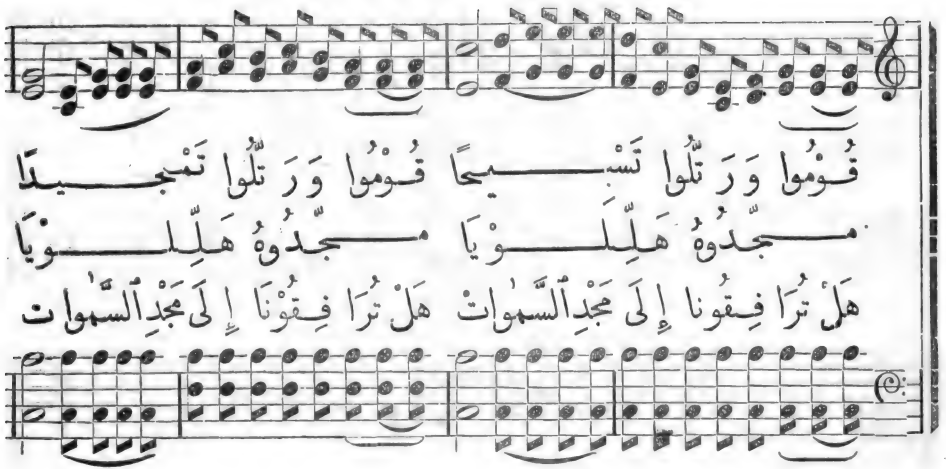 قُوْمُوا وَرَتِّلُوا تَسْبِيحًا قُوْمُوا وَرَتِّلُوا تَمْجِيدًا
مَجِّدُوهُ هَلِّلُوْيَا مَجِّدُوهُ هَلِّلُوْيَا
هَلْ تُرَافِقُونَا إِلَى مَجْدِ ٱلسَّمٰوَاتْ هَلْ تُرَافِقُوْنَا إِلَى مَجْدِ ٱلسَّمٰوَاتْ